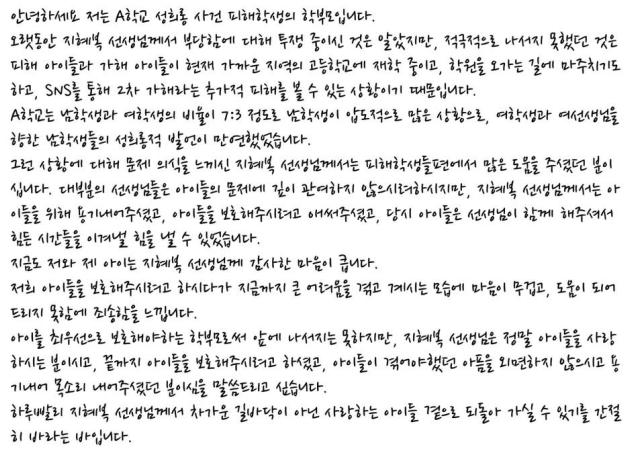 안녕하세요 저는 A학교 성희롱 사건 피해학생의 학부모입니다.
오랫동안 지혜복 선생님께서 부당함에 대해 투쟁 중이신 것은 알았지만, 적극적으로 나서지 못했던 것은
피해 아이들과 가해 아이들이 현재 가까운 지역의 고등학교에 재학 중이고, 학원을 오가는 길에 마주치기도
하고, SNS를 통해 2차 가해라는 추가적 피해를 볼 수 있는 상황이기 때문입니다.
A학교는 남학생과 여학생의 비율이 7:3 정도로 남학생이 압도적으로 많은 상황으로, 여학생과 여선생님을
향한 남학생들의 성희롱적 발언이 만연했었습니다.
그런 상황에 대해 문제 의식을 느끼신 지혜복 선생님께서는 피해학생들편에서 많은 도움을 주셨던 분이
십니다. 대부분의 선생님들은 아이들의 문제에 깊이 관여하지 않으시려하시지만, 지혜복 선생님께서는 아
이들을 위해 용기내어주셨고, 아이들을 보호해주시려고 애써주셨고, 당시 아이들은 선생님이 함께 해주셔서
힘든 시간들을 이겨낼 힘을 낼 수 있었습니다.
지금도 저와 제 아이는 지혜복 선생님께 감사한 마음이 큽니다.
저희 아이들을 보호해주시려고 하시다가 지금까지 큰 어려움을 겪고 계시는 모습에 마음이 무겁고, 도움이 되어
드리지 못함에 죄송함을 느낍니다.
아이를 최우선으로 보호해야하는 학부모로써 앞에 나서지는 못하지만, 지혜복 선생님은 정말 아이들을 사랑
하시는 분이시고, 끝까지 아이들을 보호해주시려고 하셨고, 아이들이 겪어야했던 아픔을 외면하지 않으시고 용
기내어 목소리 내어주셨던 분이심을 말씀드리고 싶습니다.
하루빨리 지혜복 선생님께서 차가운 길바닥이 아닌 사랑하는 아이들 곁으로 되돌아 가실 수 있기를 간절
히 바라는 바입니다.